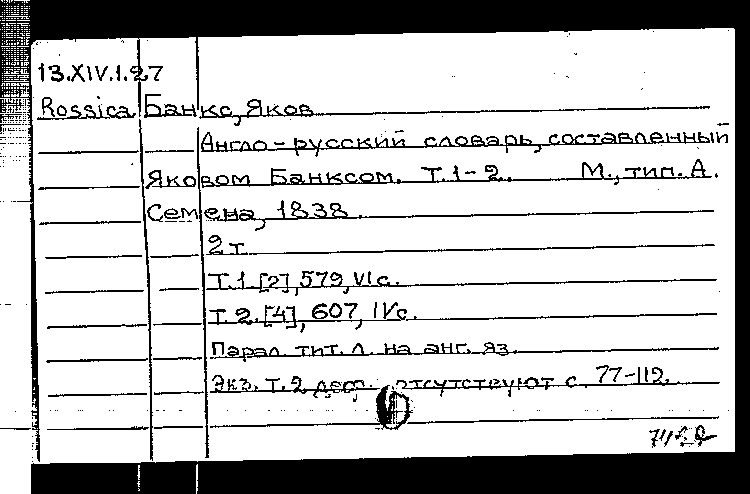 13.XIV.1.27
Rossica Банкс, Яков
Англо-русский словарь, составленный
Яковом Банксом. Т.1-2. М., тип. А.
Семена, 1838.
2 т.
Т.1. [2], 579, VI с.
Т.2. [4], 607, IV с.
Парал. тит. л. на анг. яз.
Экз. Т.2 деф. отсутствуют с. 77-112.